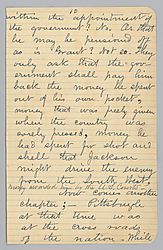 10
within the appointment of
the government? No. Or that
he may be pensioned
as is Grant? Not so. They
only ask that the gov-
ernment shall pay him
back the money he spent
out of his own pocket,
money that was freely given
when the country was
sorely pressed, money he
had spent for shot and
shell that Jackson
might drive the enemy
from the South, that
Now comes another
chapter; — Pittsburgh
at that time was
at the cross roads
of the nation. While